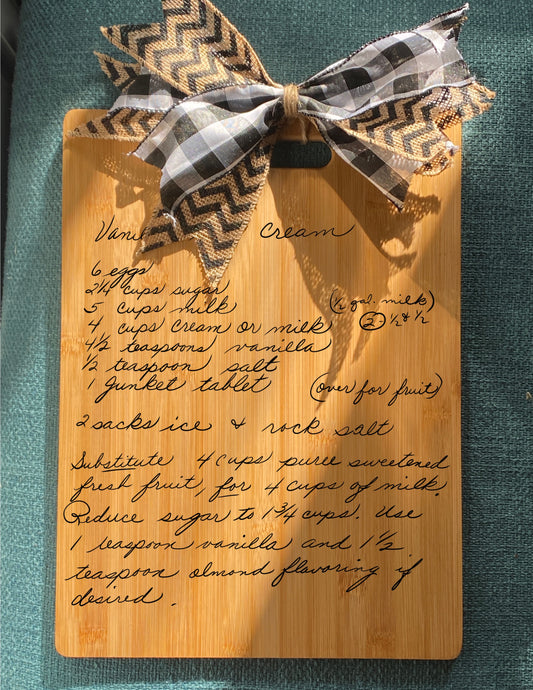 Vani Cream
6 eggs
2 1/4 cups sugar
5 cups milk (1/2 gal. milk)
4 cups cream or milk 2 - 1/2 & 1/2
4 1/2 teaspoons vanilla
1/2 teaspoon salt
1 junket tablet (over for fruit)
2 sacks ice & rock salt
Substitute 4 cups puree sweetened
fresh fruit, for 4 cups of milk.
Reduce sugar to 1 3/4 cups. Use
1 teaspoon vanilla and 1 1/2
teaspoon almond flavoring if
desired.